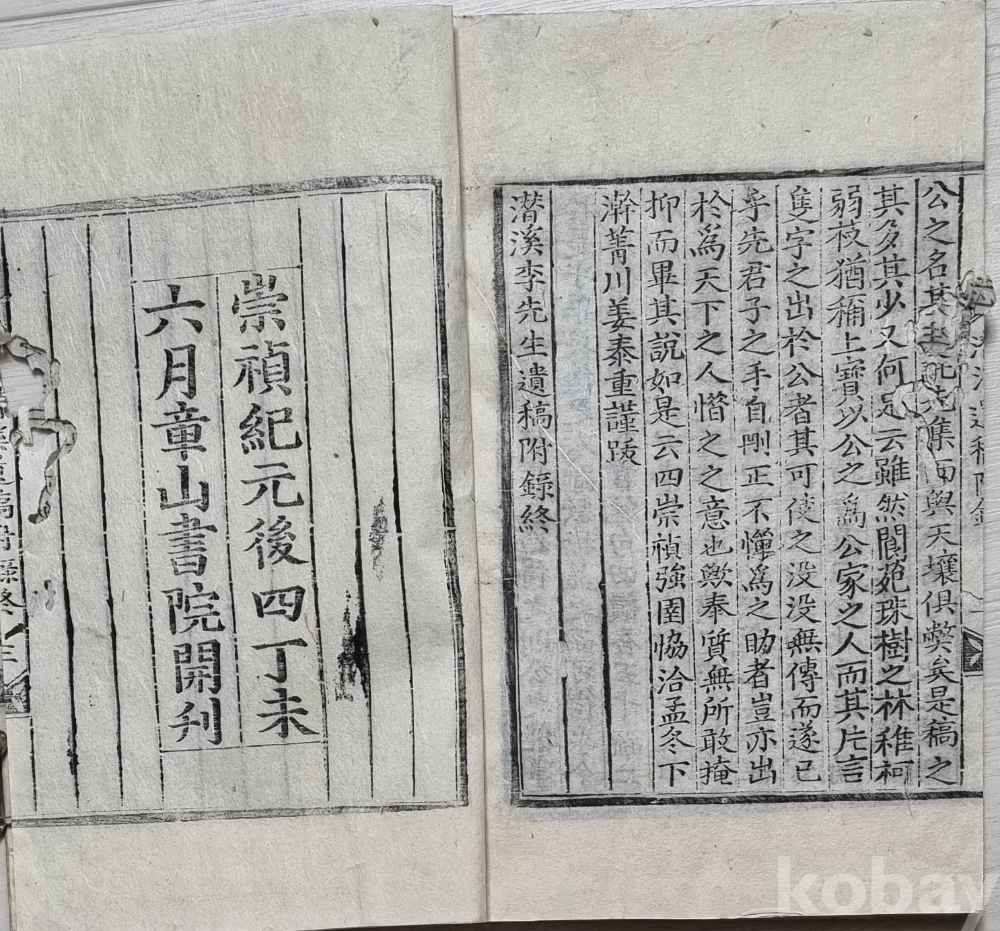 公之名其
集而與天壤俱弊矣是稿之
其多其少又何足云雖然閬苑珠樹之林稚柯
弱枝猶稱上寶以公之爲公家之人而其片言
隻字之出於公者其可使之没没無傳而遂已
乎先君子之手自剛正不憚爲之助者豈亦出
於爲天下之人惜之之意也歟奉質無所敢掩
抑而畢其說如是云四崇禎強圉協洽孟冬下
澣菁川姜泰重謹跋
潛溪李先生遺稿附錄終
崇禎紀元後四丁未
六月章山書院開刋
遺稿附錄終
三
kobay